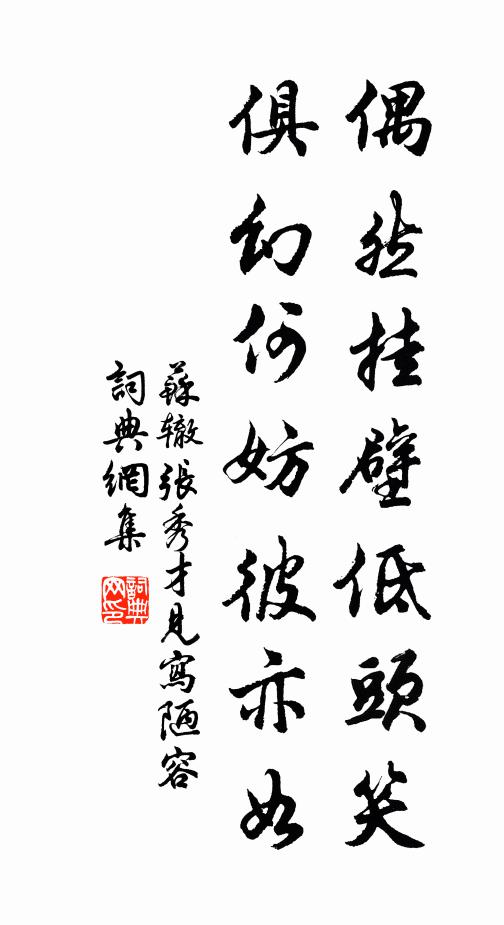 偶然挂壁低頭笑
俱幻何妨彼亦如
蘇辙張秀才見寫陋容
詞典網集
詞典網印